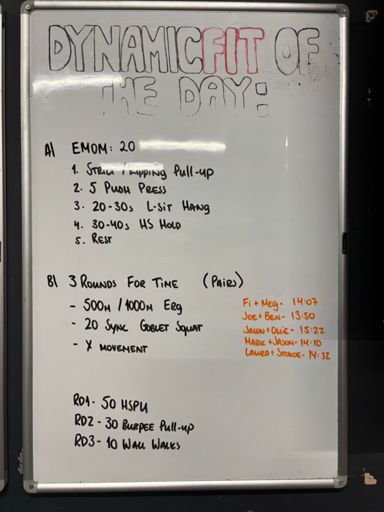 DYNAMICFIT OF
THE DAY:
A) EMOM: 20
1. STRICT / KIPPING PULL-UP
2. 5 PUSH PRESS
3. 20-30s L-SIT HANG
4. 30-40s HS HOLD
5. REST
B) 3 ROUNDS FOR TIME (PAIRS)
- 500M / 1000M ERG
- 20 SYNC GOBLET SQUAT
- X MOVEMENT
Fi + Meg - 14:07
JOE + BEN - 13:50
JASON + OLLIE - 15:22
MARK + JASON - 14:10
LAURA + - 14:32
RD1 - 50 HSPU
RD2 - 30 BURPEE PULL-UP
RD3 - 10 WALL WALKS